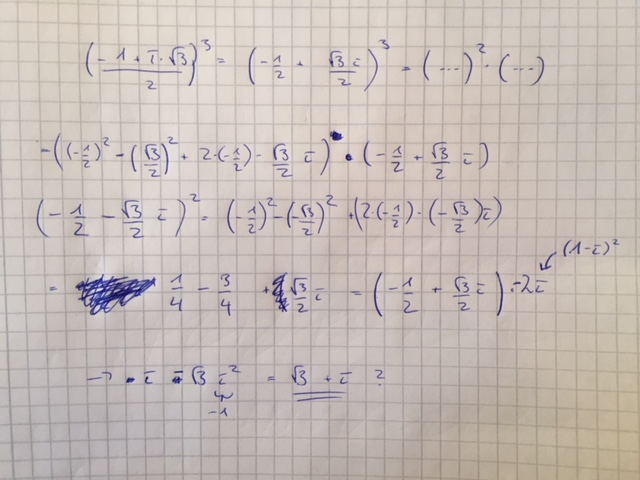 (-1 + i·√3 / 2)³ = (-1/2 + √3 i/2)³ = (---)² · (---)
-((-1/2)² - (√3/2)² + 2·(-1/2) - √3/2 i) · (-1/2 + √3/2 i)
(-1/2 - √3/2 i)² = (-1/2)² - (-√3/2)² + (2·(-1/2)·(-√3/2)i)
(1-i)²
= 1/4 - 3/4 + √3/2 i = (-1/2 + √3/2 i) · -2i
→ i √3 i² = √3 + i ?
-1